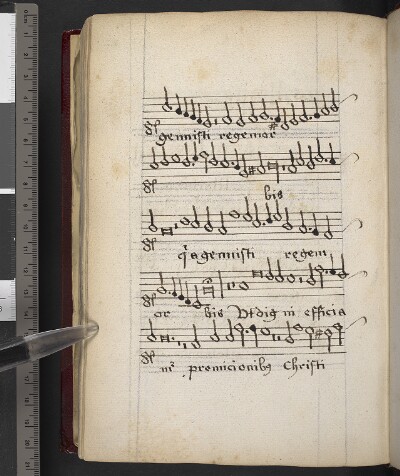 genuisti regem or
bis
q̄ a genuisti regem
or bis Vt dig ni efficia
m̄ promicionibꝯ Christi